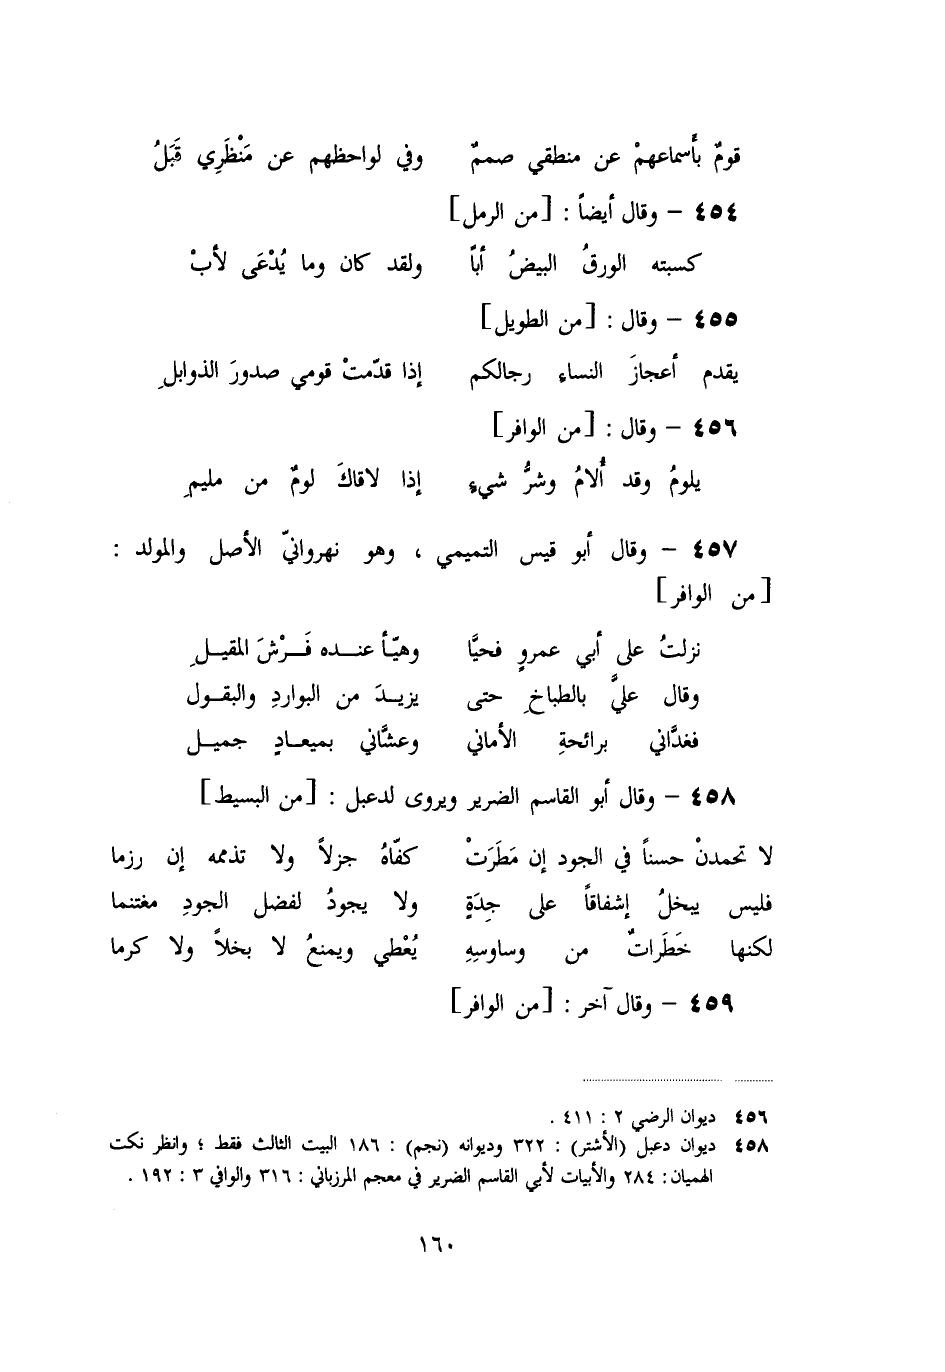 قومٌ بأَسماعهمْ عن منطقي صممٌ وفي لواحظهم عن مَنْظَرِي قَبَلُ
٤٥٤ – وقال أيضاً : [من الرمل]
كسبته الورقُ البيضُ أباً ولقد كان وما يُدْعَى لأبْ
٤٥٥ – وقال : [من الطويل]
يقدم أعجازَ النساءِ رجالكم إذا قدّمتْ قومي صدورَ الذوابلِ
٤٥٦ – وقال : [من الوافر]
يلومُ وقد أُلامُ وشرُّ شيءٍ إذا لاقاكَ لومٌ من مليمِ
٤٥٧ – وقال أبو قيس التميمي ، وهو نهروانيّ الأصل والمولد :
[من الوافر]
نزلتُ على أبي عمروٍ فحيَّا وهيّأ عنده فَرْشَ المقيلِ
وقال عليَّ بالطباخِ حتى يزيدَ من البواردِ والبقول
فغدَّاني برائحةِ الأماني وعشَّاني بميعادٍ جميل
٤٥٨ – وقال أبو القاسم الضرير ويروى لدعبل : [من البسيط]
لا تحمدنْ حسناً في الجود إن مَطَرَتْ كفّاهُ جزلاً ولا تذممه إن رزما
فليس يبخلُ إشفاقاً على جِدَةٍ ولا يجودُ لفضل الجودِ مغتنما
لكنها خَطَراتٌ من وساوسِهِ يُعْطي ويمنعُ لا بخلاً ولا كرما
٤٥٩ – وقال آخر : [من الوافر]
٤٥٦ ديوان الرضي ٢ : ٤١١ .
٤٥٨ ديوان دعبل (الأشتر) : ٣٢٢ وديوانه (نجم) : ١٨٦ البيت الثالث فقط ؛ وانظر نكت
الهميان : ٢٨٤ والأبيات لأبي القاسم الضرير في معجم المرزباني : ٣١٦ والوافي ٣ : ١٩٢ .
١٦٠